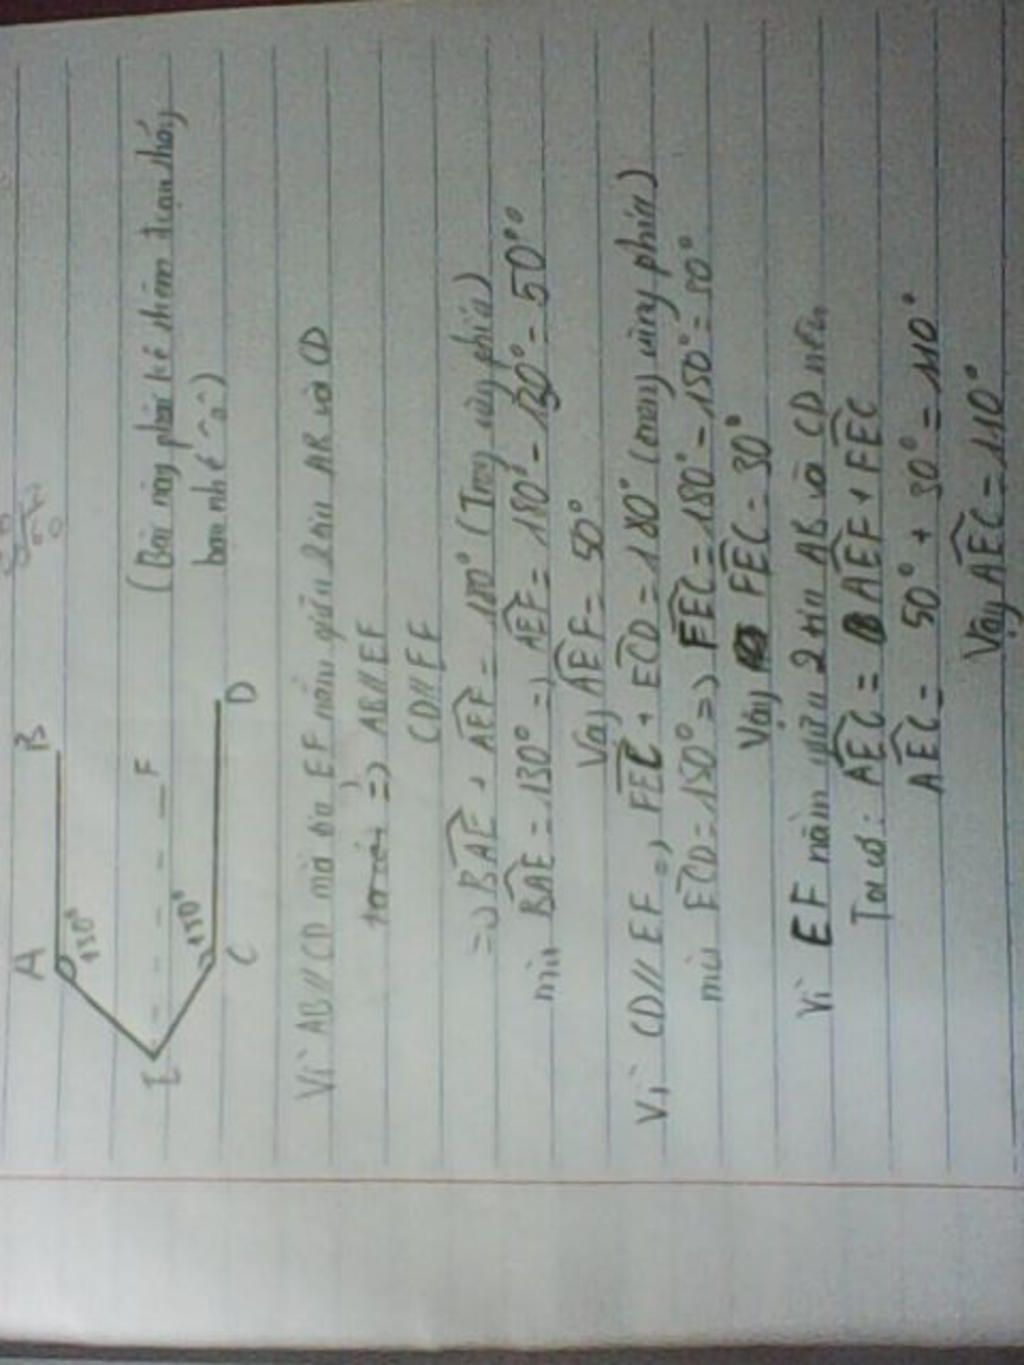 A
B
130°
E
F
150°
C
D
(Bài này phải kẻ thêm
bạn nhé ^^)
Vì AB // CD mà tia EF nằm giữa 2 tia AB và CD
=) AB // EF
CD // EF
=) BAE + AEF = 180° (Trong cùng phía)
mà BAE = 130° =) AEF = 180° - 130° = 50°
Vậy AEF = 50°
Vì CD // EF =) FEC + ECD = 180° (trong cùng phía)
mà ECD = 150° =) FEC = 180° - 150° = 30°
Vậy FEC = 30°
Vì EF nằm giữa 2 tia AB và CD nên
Ta có: AEC = AEF + FEC
AEC = 50° + 30° = 110°
Vậy AEC = 110°